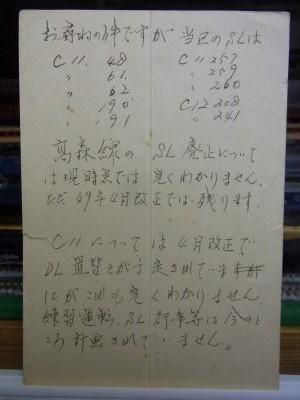 お尋ねの件ですが 当区のSLは
C11. 48 C11 257
〃 61. 〃 259
〃 62 〃 260
〃 190 C12 208
〃 191 〃 241
高森線の SL 廃止について
は現時点では 良くわかりません.
ただ 49年4月改正では残ります.
C11については 4月改正で
DL置替えが予定されていま
したがこれも良くわかりません.
練習運転、SL行事等は今のと
ころ計画されていません。